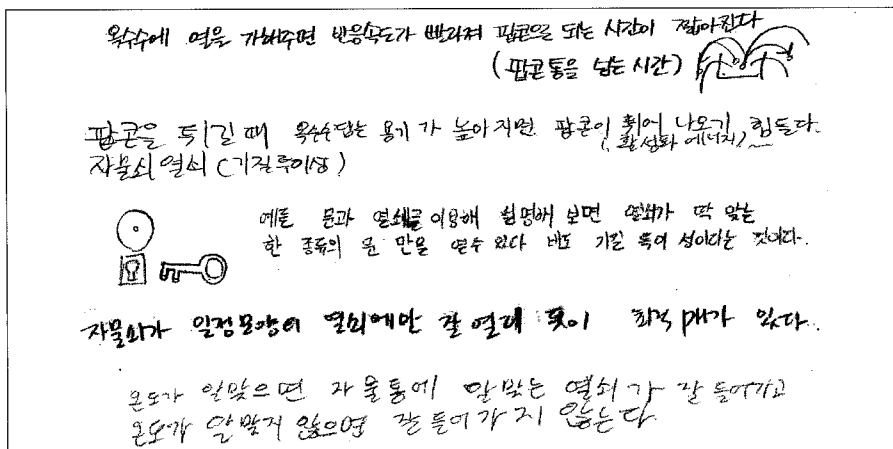 옥수수에 열을 가해주면 반응속도가 빨라져 팝콘으로 되는 시간이 짧아진다
(팝콘통을 넘는 시간)
팝콘을 튀길때 옥수수담는 용기가 높아지면 팝콘이 튀어 나오기 힘들다.
(활성화 에너지)
자물쇠 열쇠 (기질특이성)
예를 문과 열쇠를 이용해 설명해 보면 열쇠가 딱 맞는
한 종류의 문 만을 열수 있다 바로 기질 특이 성이다는 것이다.
자물쇠가 일정모양의 열쇠에만 잘 열리 듯이 최적 pH가 있다.
온도가 알맞으면 자물통에 알맞는 열쇠가 잘 들어가고
온도가 알맞지 않으면 잘 들어가지 않는다.